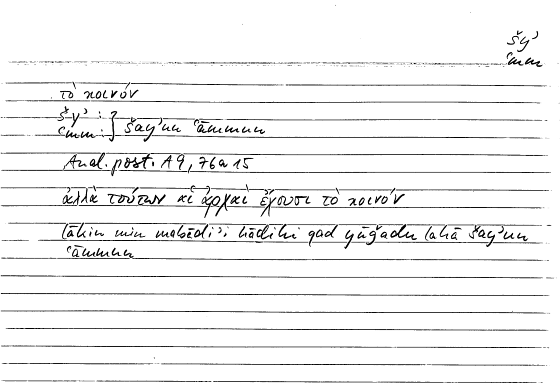 šyʾ
ʿmm
τὸ κοινόν
šyʾ :
ʿmm : } šayʾun ʿāmmun
Anal. post. A 9, 76a15
ἀλλὰ τούτων αἱ ἀρχαὶ ἔχουσι τὸ κοινόν
lākin min mabādiʾi hāḏihi qad yūǧadu lahā šayʾun
ʿāmmun